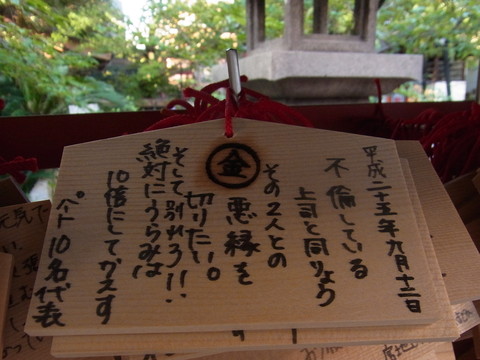 平成二十五年九月十二日
不倫している
上司と同りょう
その2人との
金
悪縁を
切りたい。
そして別れろ!!
絶対にうらみは
10倍にしてかえす
パート10名代表